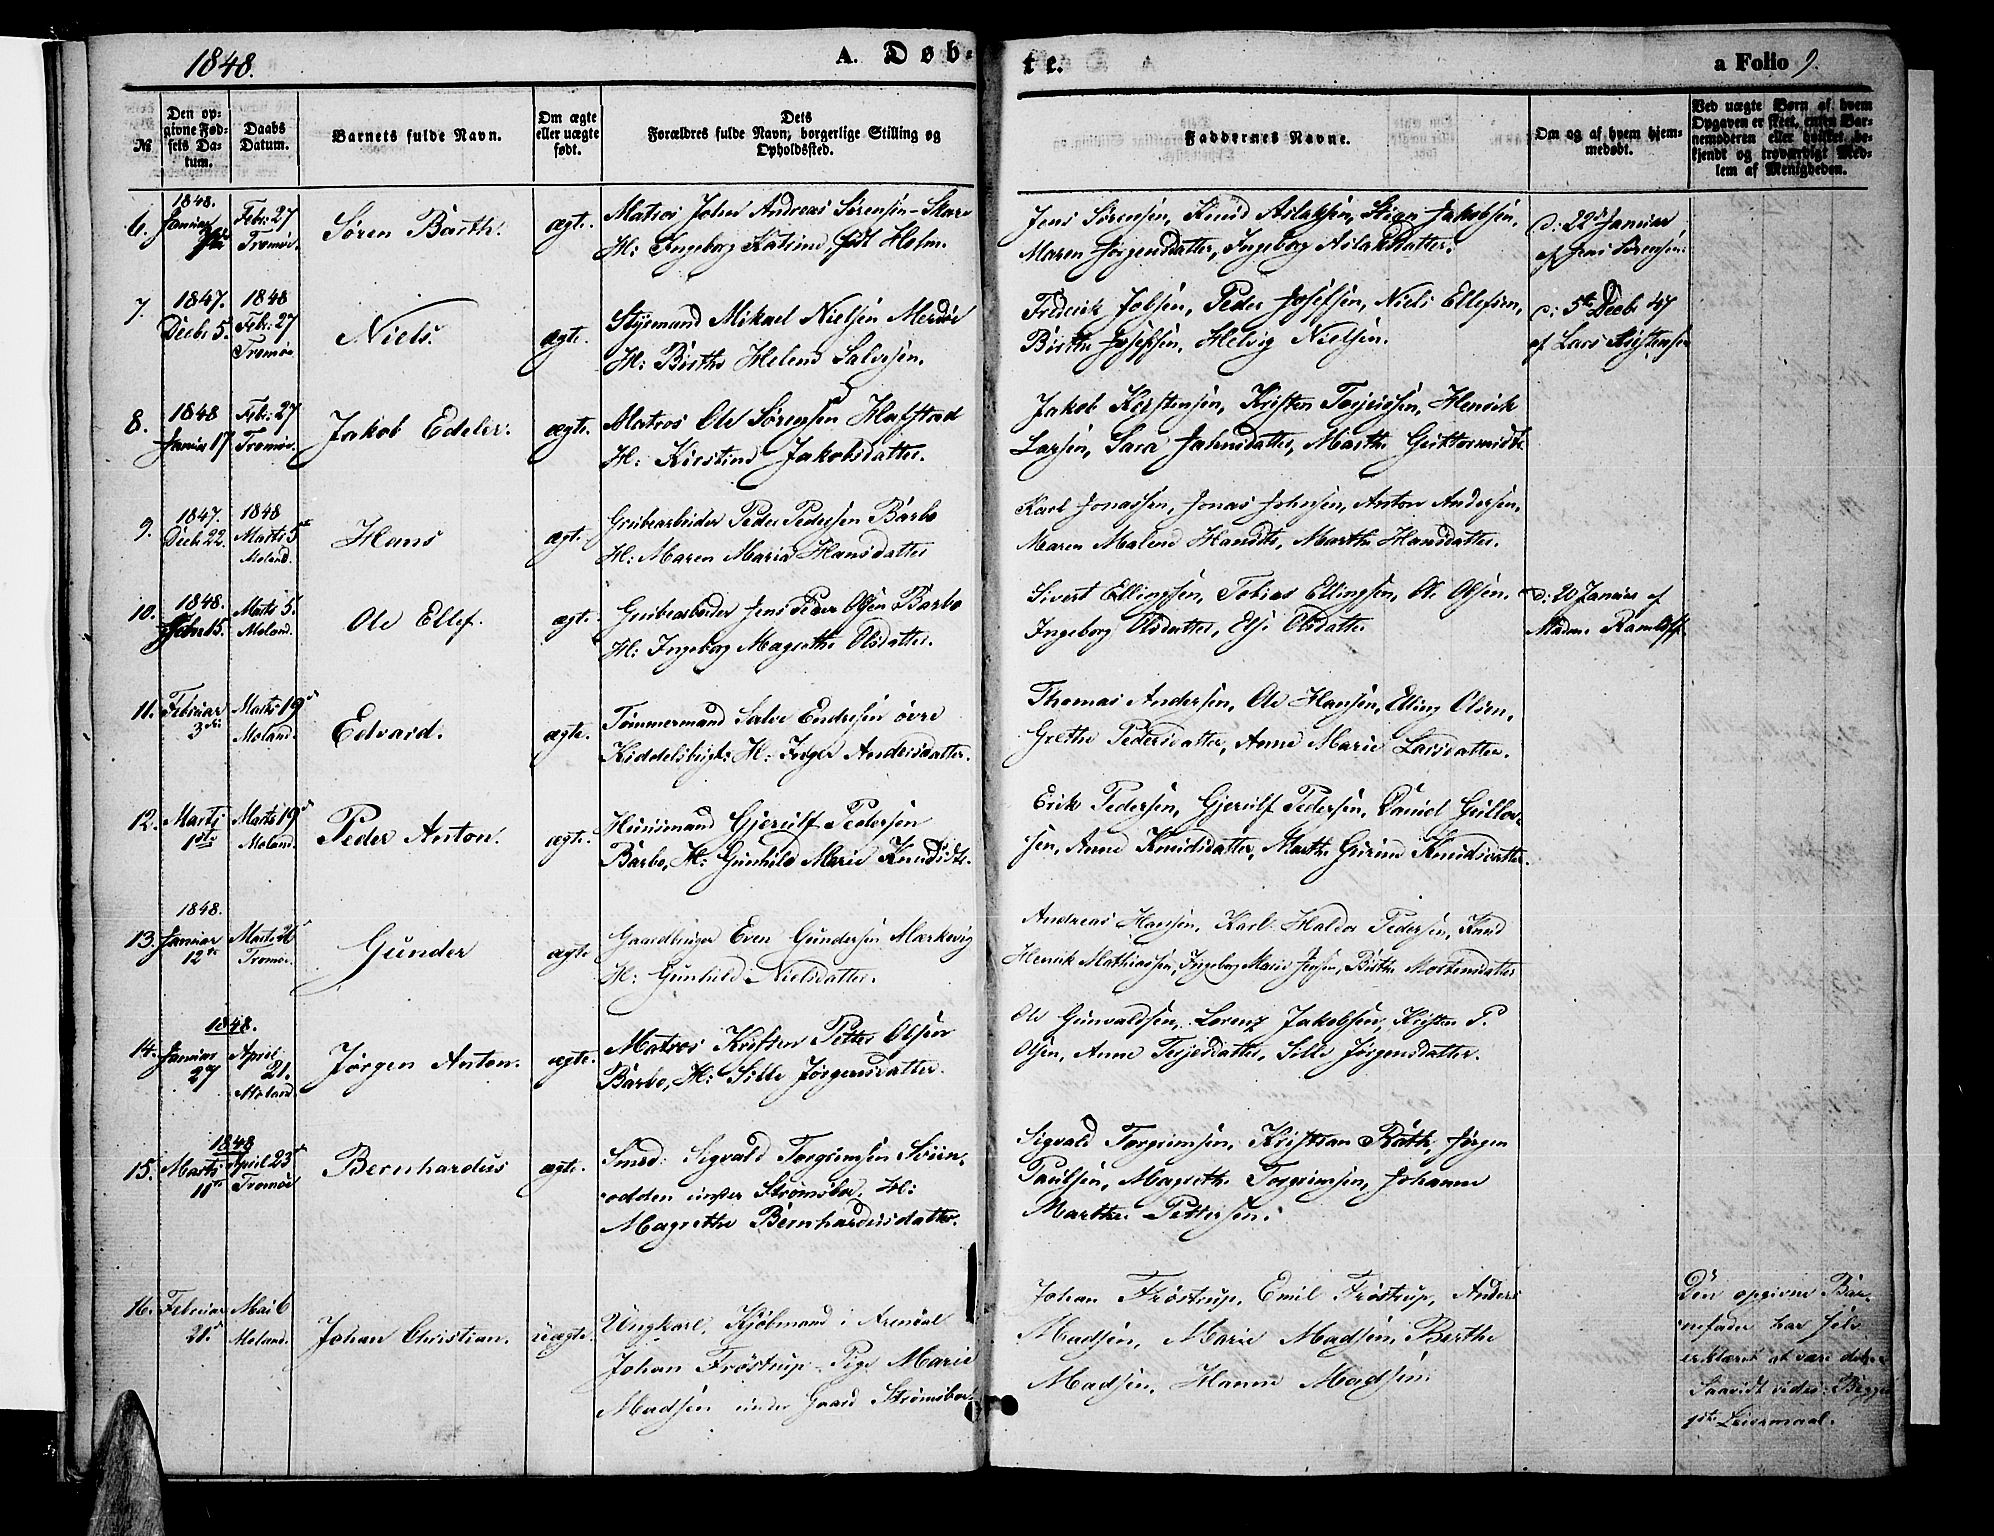 1848.
A. Døb-
te.
a Folio 9.
№
Den opgivne Fødsels Datum.
Daabs Datum.
Barnets fulde Navn.
Om ægte eller uægte født.
Dets Forældres fulde Navn, borgerlige Stilling og Opholdssted.
Faddernes Navne.
Om og af hvem hjemmedøbt.
Ved uægte Børn af hvem Opgaven er skeet, enten Barnemoderen eller hvilket bekjendt og troværdigt Medlem af Menigheden.
6. 1848. Januar Febr: 27 Tromøe. Søren Barth. ægte.
Matros John Andreas Sørensen Skare
H: Ingeborg Katrine født Holm.
Jens Sørensen, Knud Aslaksen, Stian Jakobsen,
Maren Jørgensdatter, Ingeborg Aslaksdatter.
d: 22d Januar
af Jens Sørensen.
7. 1847. Decbr 5. 1848 Febr: 27 Tromøe Niels. ægte.
Styrmand Mikael Nielsen Merdøe
H: Birthe Helene Salvesen.
Frederik Jobsen, Peder Josefsen, Niels Ellefsen,
Birthe Josefsen, Helvig Nielsen.
d: 5te Decbr 47
af Lars
8. 1848 Januar 17. Febr: 27 Tromøe. Jakob Edeler. ægte.
Matros Ole Sørensen Halfstad
H: Kirstine Jakobsdatter.
Jakob Kirstensen, Kristen Terjeissen, Henrik
Larsen, Sara Jahnsdatter, Marthe
9. 1847. Decbr 22. 1848 Marts 5te Moland. Hans ægte.
Grubearbeider Peder Pedersen Barbo
H: Maren Maria Hansdatter
Karl Jonassen, Jonas Johnsen, Anton Andersen,
Maren Malene Hansdtr, Marthe Hansdatter.
10. 1848. 15. Marts 5. Moland. Ole Ellef. ægte.
Grubearbeider Jens Peder Olsen Barbo
H: Ingeborg Magrethe Olsdatter.
Sivert Ellingsen, Tobias Ellingsen, Ole Olsen.
Ingeborg Olsdatter, Else Olsdatter
d: 20 Januar af
Madm:
11. Februar 3die Marts 19d Moland. Edvard. ægte.
Tømmermand Salve Endresen øvre
H: Inger Andersdatter.
Thomas Andersen, Ole Hansen, Elling Olsen,
Grethe Pedersdatter, Anne Marie Larsdatter.
12. Marts 1ste Marts 19d Moland. Peder Anton. ægte.
Huusmand Gjerulf Pedersen
Barbo, H: Gunhild Marie Knudsdtr.
Erik Pedersen, Gjerulf Pedersen, Daniel Gullov-
sen, Anne Knudsdatter, Marthe Gurine Knudsdatter.
13. 1848. Januar 12te Marts 26 Tromøe. Gunder ægte
Gaardbruger Even Gundersen Mærkevig
H: Gunhild Nielsdatter.
Andreas Hansen, Karl Haldor Pedersen, Knud
Henrik Mathiassen, Ingeborg Marie Jensen, Birthe Mortensdatter
14. Januar 27 1848. April 21. Moland. Jørgen Anton. ægte.
Matros Kristen Petter Olsen
Barbo, H: Sille Jørgensdatter.
Ole Gunvaldsen, Lorenz Jakobsen, Kristen P.
Olsen, Anne Terjesdatter, Sille Jørgensdatter.
15. Marts 11te 1848 April 23d Tromøe Bernhardus ægte.
Smed: Sigvald Torgrimsen Steen-
odden under Strømsboe. H:
Magrethe Bernhardusdatter.
Sigvald Torgrimsen, Kristian Rath, Jørgen
Paulsen, Magrethe Torgrimsen, Johanne
Marthe Pettersen.
16. Februar Mai 6 Moland. Johan Christian. uægte.
Ungkarl, Kjøbmand i Arendal
Johan Frøstrup Pige Marie
Madsen under Gaard Strømsboe.
Johan Frøstrup, Emil Frøstrup, Anders
Madsen, Marie Madsen, Berthe
Madsen, Hanne Madsen
Den opgivne Bar-
nefader har selv
erklæret at være det.
Saavidt vides Begges
1ste Leiermaal.